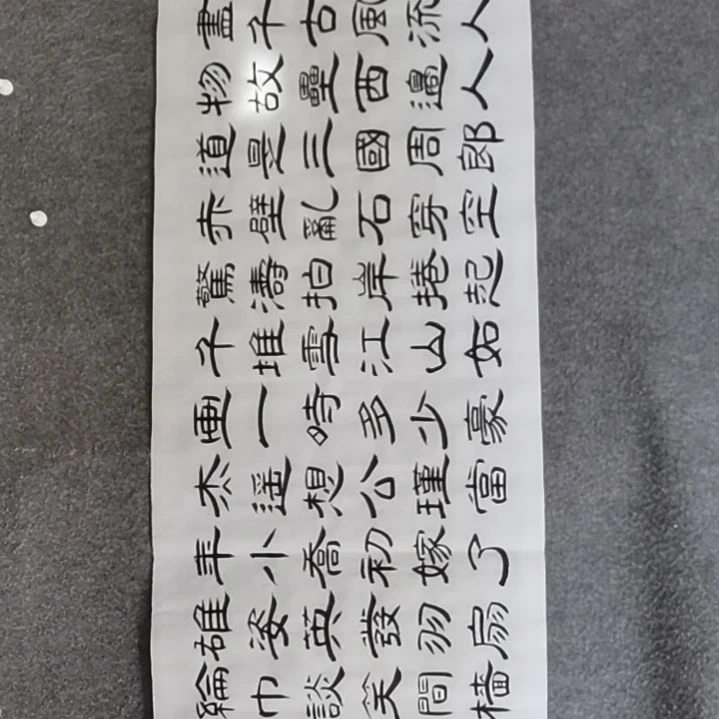 盡千古風流人
物故壘西邊人
道是三國周郎
赤壁亂石穿空
驚濤拍岸捲起
千堆雪江山如
畫一時多少豪
杰遙想公瑾當
年小喬初嫁了
雄姿英發羽扇
綸巾談笑間檣